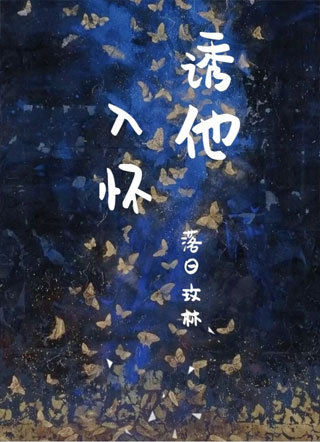 诱他
入怀
落日玟林